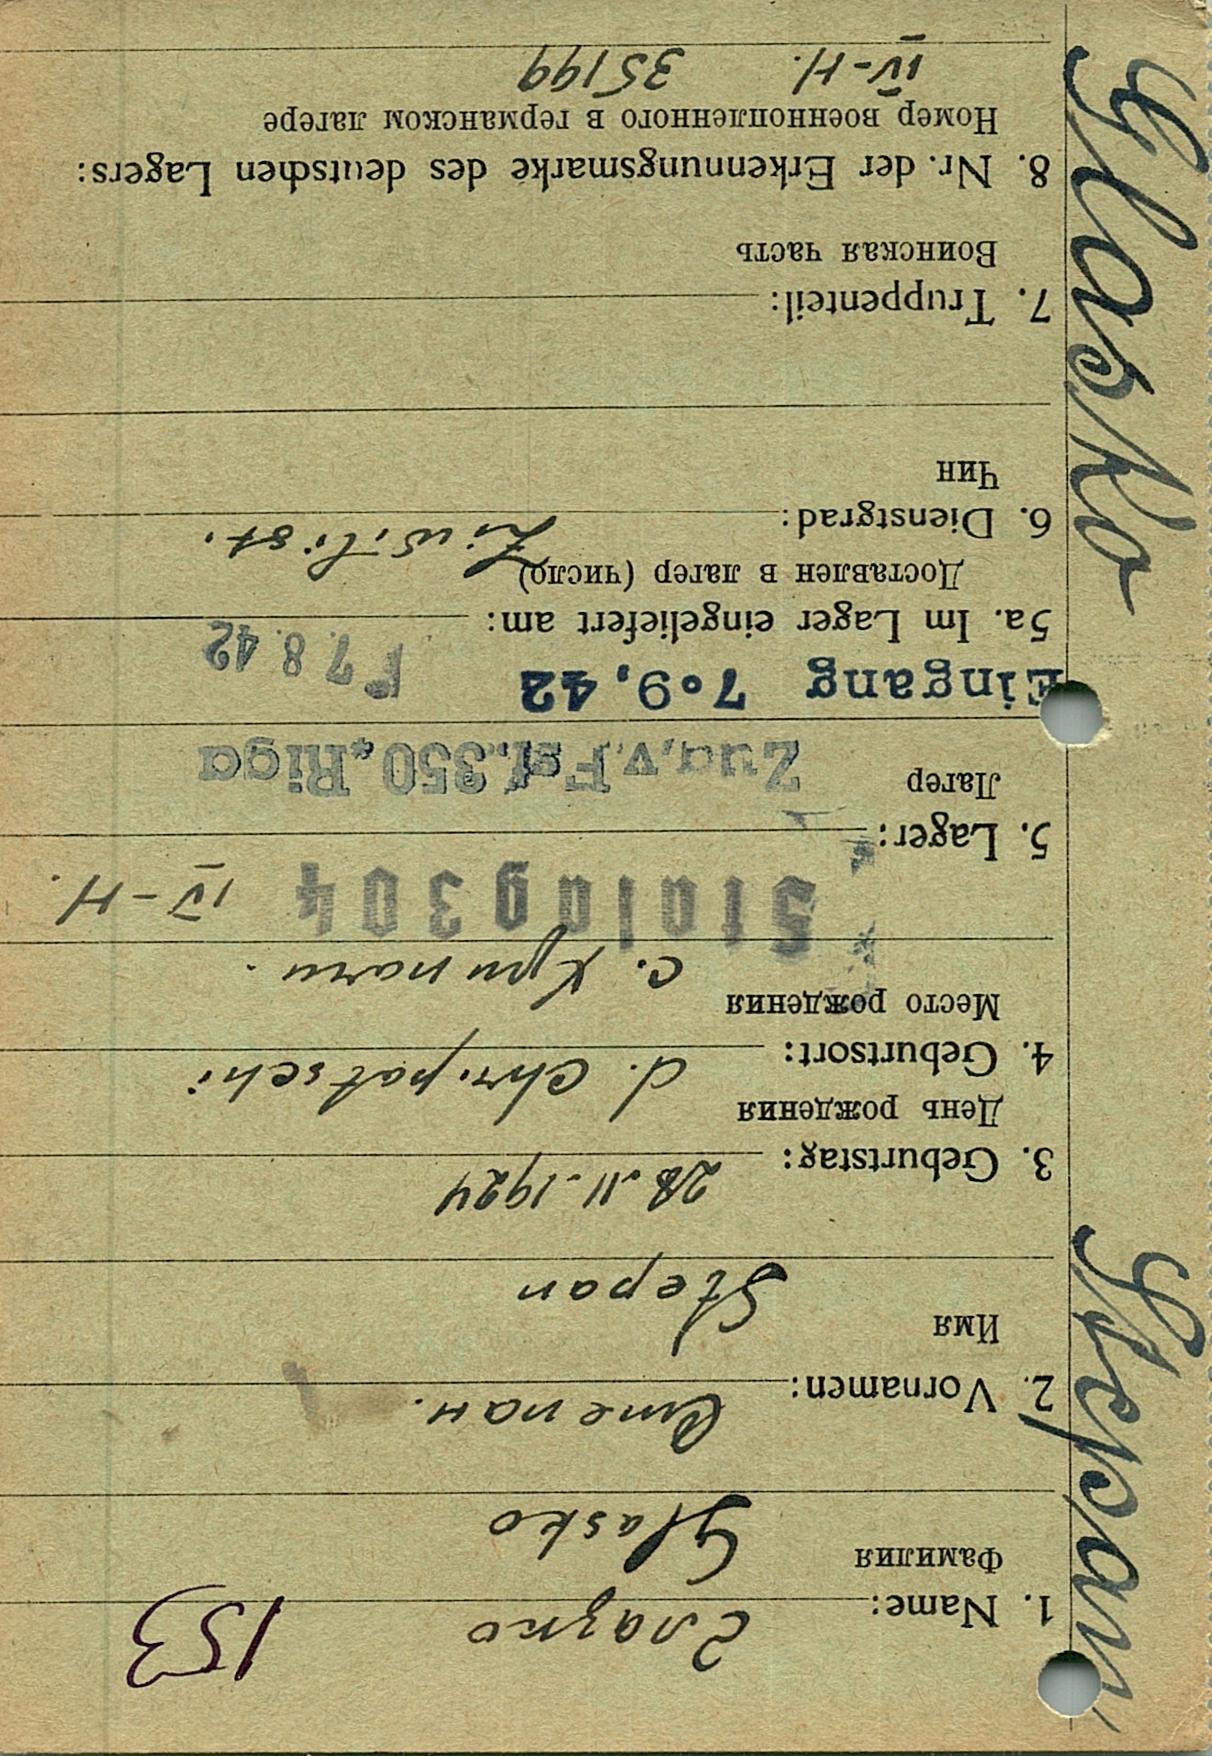 153
1. Name: Глазко
Фамилия Glasko
2. Vornamen: Степан.
Имя Stepan
3. Geburtstag: 28.11.1924
День рождения
4. Geburtsort: d. Chripatschi
Место рождения с. Хрипачи.
Stalag 304 IV-H.
5. Lager:
Лагер Zug. v. Fgf. 350, Riga
Eingang 7.9.42 F 7. 8. 42
5a. Im Lager eingeliefert am:
Доставлен в лагер (число)
6. Dienstgrad: Ziwilist.
Чин
7. Truppenteil:
Воинская часть
8. Nr. der Erkennungsmarke des deutschen Lagers:
Номер военнопленного в германском лагере
IV-H. 35199
Stepan Glasko